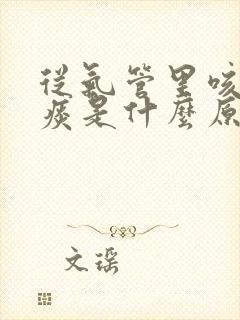 從氣管里咳
痰是什麼原
文琛